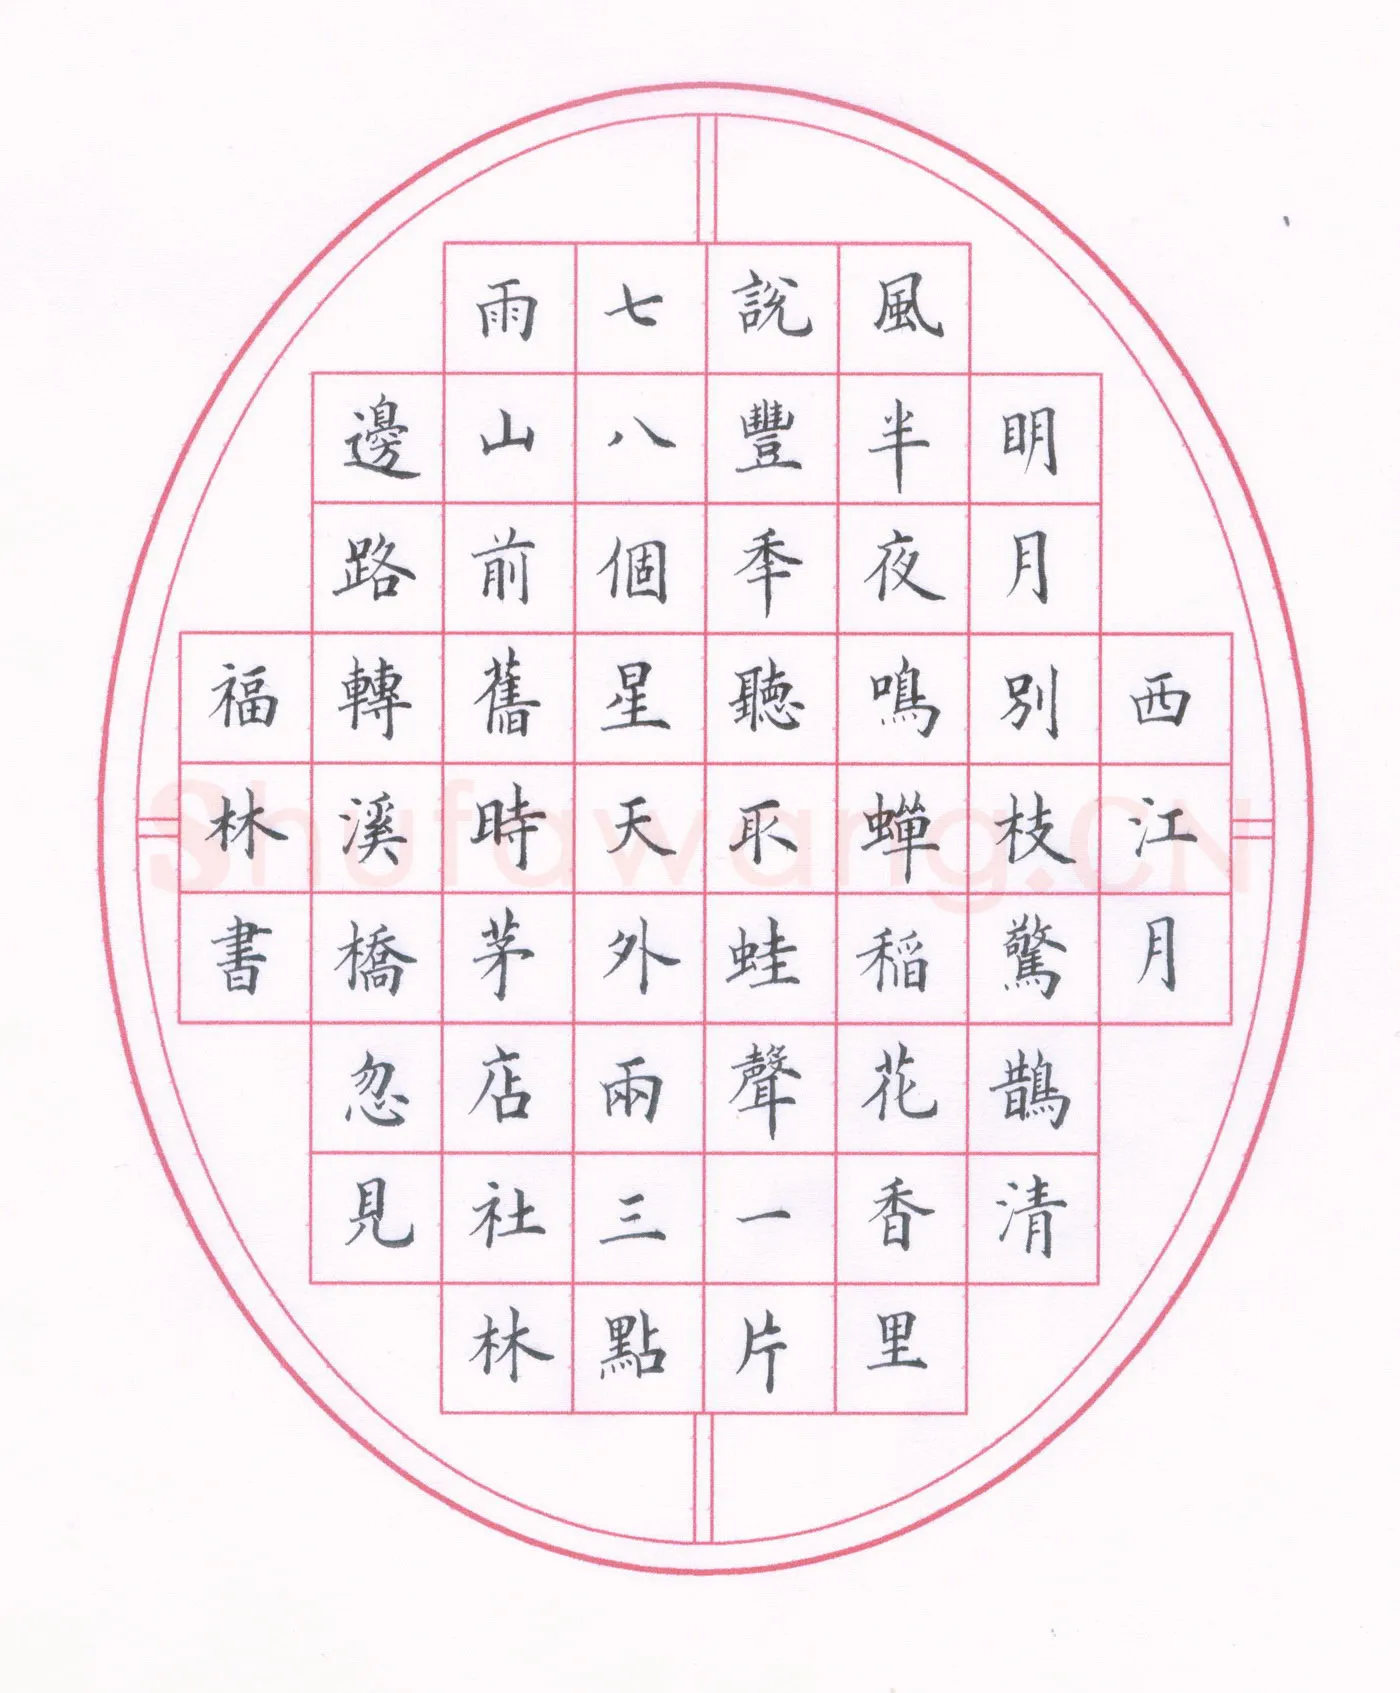 西江月
明月別枝驚鵲清
風半夜鳴蟬稻花香里
說豐秊聽取蛙聲一片
七八個星天外兩三點
雨山前舊時茅店社林
邊路轉溪橋忽見
福林書
Shufawang.CN